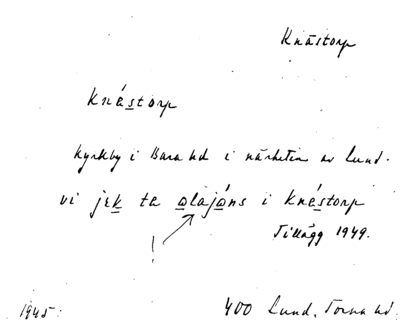 Knästorp
Knéstorp
Kyrkby i Bara hd i närheten av Lund.
vi jek te olajóns i Knéstorp
!
Tillägg 1949.
1945.
400 Lund, Torna hd.